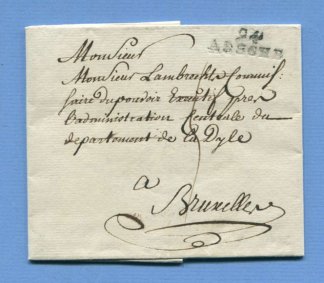 94
ASSCHE
Monsieur
Monsieur Lambrechts Commis:
saire du pouvoir Executif pres
L'administration Centrale du
departement de La Dyle
a
Bruxelles